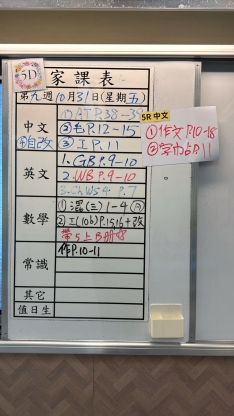 5D
家課表
第九週10月31日(星期五)
中文
+自改
① ATP.38-39
②毛P.12-15
③工P.11
英文
1.GB P.9-10
2.WB P.9-10
3.ChWS4 P.7
數學
①濕(三)1-4
②工(10b)P.15,16+改
帶5上B冊
常識
作P.10-11
其它
值日生
5R 中文
①作文P.10-18
②P.11